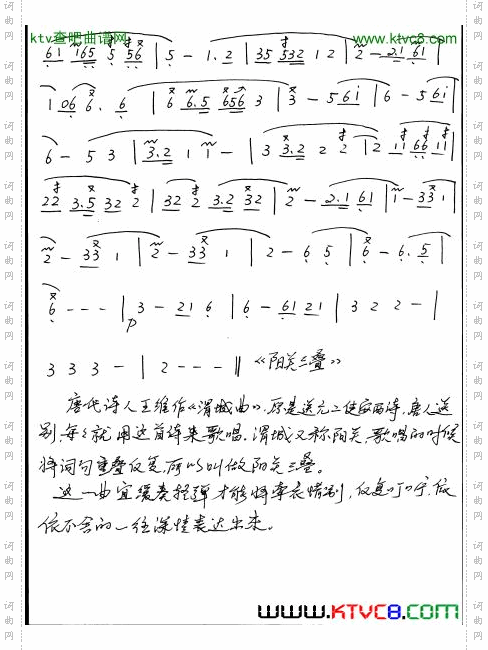 ktv查吧曲谱网
www.ktvc8.com
61 165 5 56 | 5 - 1.2 | 35 532 12 | 2 - 21 61 |
1 06 6. 6 | 6 6.5 656 3 | 3 - 5 6i | 6 - 5 6i |
6 - 5 3 | 3.2 1 1 - | 3 3.2 2 2 | 2 11 66 11 |
22 3.5 32 2 | 32 2 3.2 32 | 2 - 2.1 61 | 1 - 33 1 |
2 - 33 1 | 2 - 33 1 | 2 - 6 5 | 6 - 6. 5 |
6 - - - | 3 - 21 6 | 6 - 61 21 | 3 2 2 - |
p
3 3 3 - | 2 - - - || 《阳关三叠》
唐代诗人王维作《渭城曲》,原是送元二使安西诗,唐人送
别,每每就用这首诗来歌唱,渭城又称阳关,歌唱的时候
将词句重叠反复,所以叫做阳关三叠。
这一曲宜缓奏轻弹才能将牵衣惜别,反复叮咛,依
依不舍的一往深情表达出来。
www.KTVC8.com
词曲网